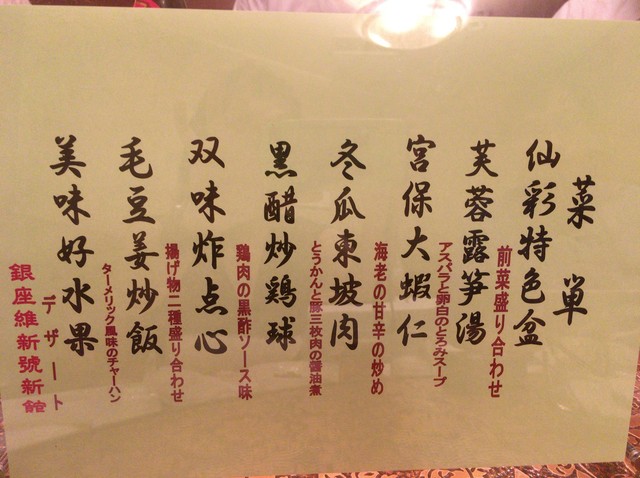 菜単
仙彩特色盆
前菜盛り合わせ
芙蓉露笋湯
アスパラと卵白のとろみスープ
宮保大蝦仁
海老の甘辛の炒め
冬瓜東坡肉
とうがんと豚三枚肉の醤油煮
黒醋炒鶏球
鶏肉の黒酢ソース味
双味炸点心
揚げ物二種盛り合わせ
毛豆姜炒飯
ターメリック風味のチャーハン
美味好水果
デザート
銀座維新號新館